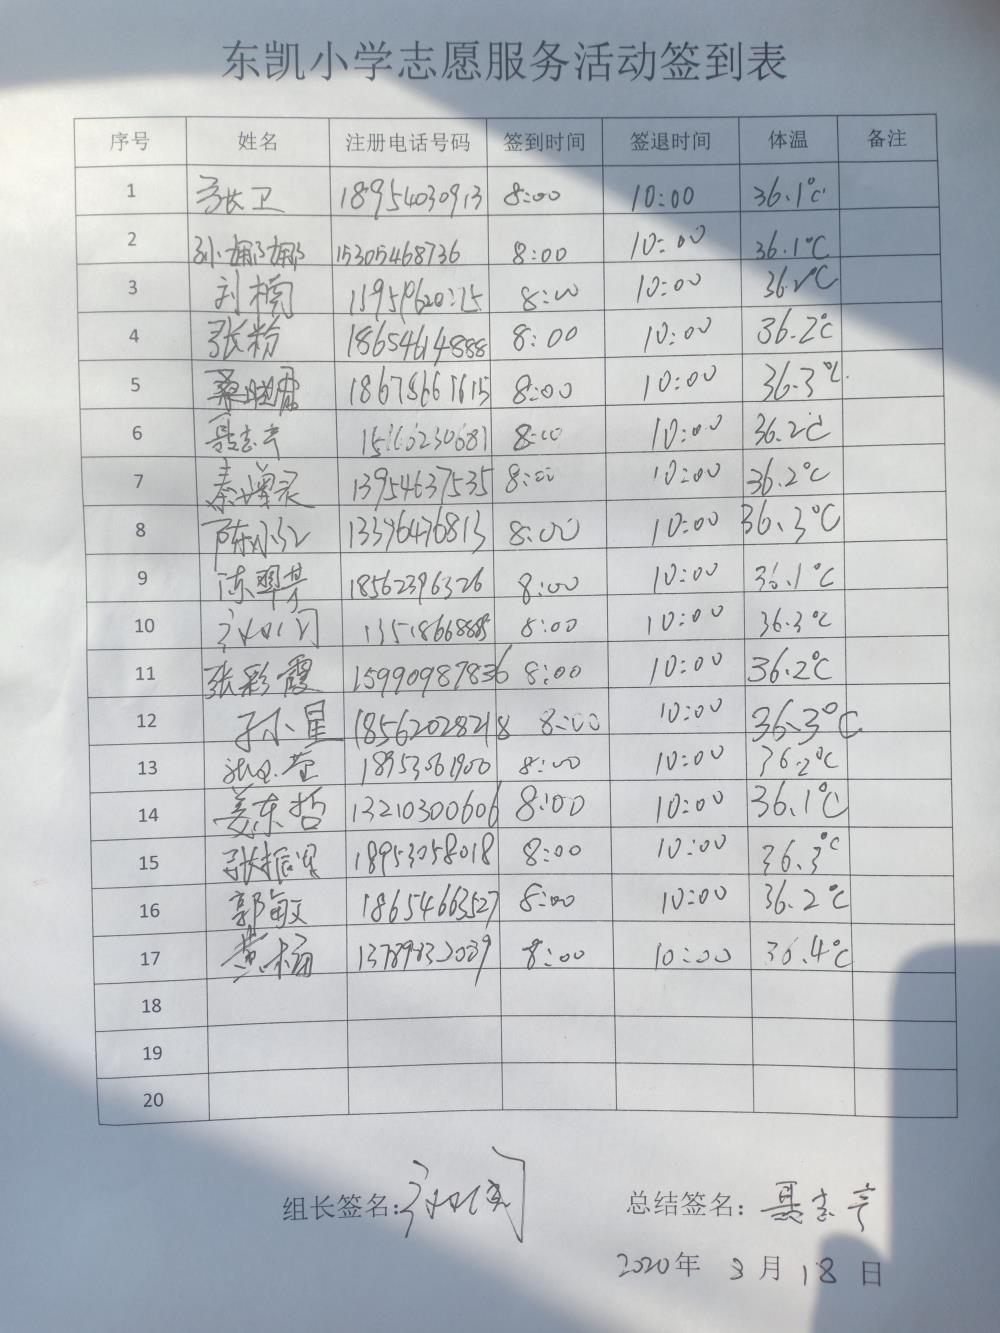 东凯小学志愿服务活动签到表
序号 姓名 注册电话号码 签到时间 签退时间 体温 备注
1 张卫 18954030913 8:00 10:00 36.1℃
2 孙娜娜 15305468736 8:00 10:00 36.1℃
3 刘楠 8:00 10:00 36.2℃
4 张粉 18654614888 8:00 10:00 36.2℃
5 桑晓霞 8:00 10:00 36.3℃
6 聂志亭 8:00 10:00 36.2℃
7 秦增录 13954637535 8:00 10:00 36.2℃
8 陈小红 13376476813 8:00 10:00 36.3℃
9 陈翠芳 18562396326 8:00 10:00 36.1℃
10 8:00 10:00 36.3℃
11 张彩霞 15990987836 8:00 10:00 36.2℃
12 孙星 18562028218 8:00 10:00 36.3℃
13 18953061900 8:00 10:00 36.2℃
14 姜东哲 13210300606 8:00 10:00 36.1℃
15 18953058018 8:00 10:00 36.3℃
16 郭敏 18654663527 8:00 10:00 36.2℃
17 黄杨 8:00 10:00 36.4℃
18
19
20
组长签名: 总结签名: 聂志亭
2020年 3月 18日